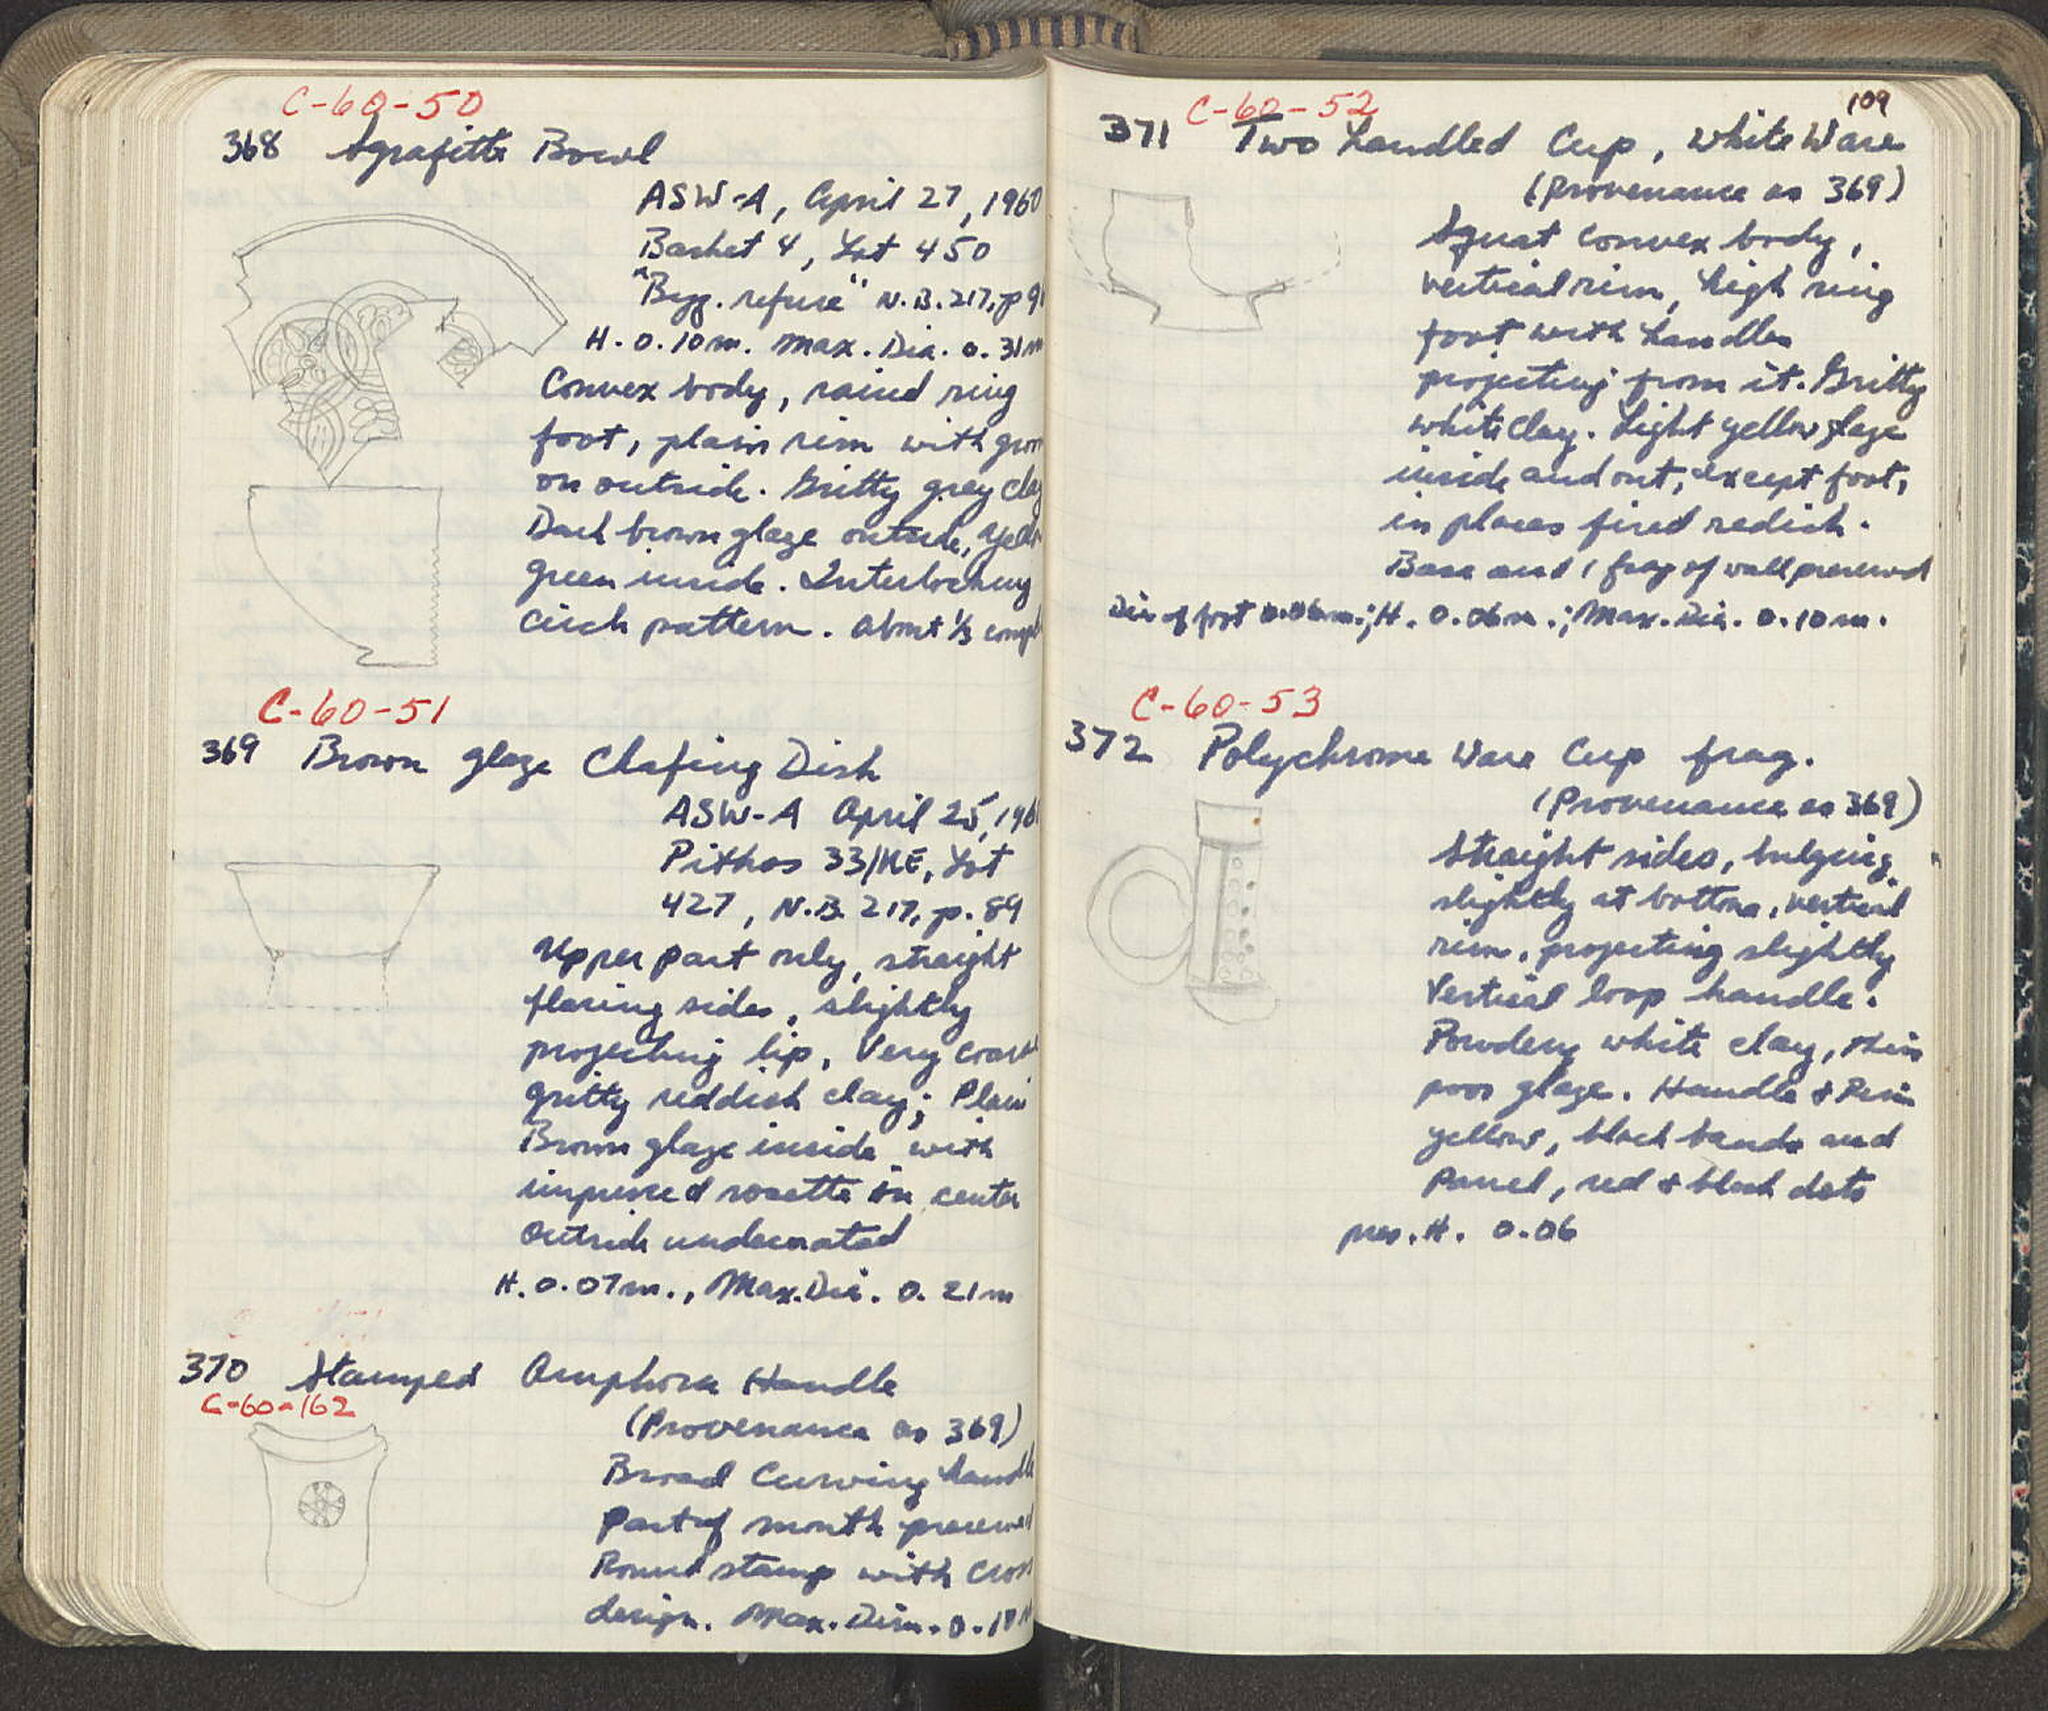 C-60-50
368 Sgrafitto Bowl
ASW-A, April 27, 1960
Basket 4, Lot 450
"Byz. refuse" N.B. 217, p
H. 0.10m. Max. Dia. 0.31m
Convex body, raised ring
foot, plain rim with
on outside. Gritty grey clay
Dark brown glaze outside,
green inside. Interlocking
circle pattern. About 1/3
C-60-51
369 Brown glaze Chafing Dish
ASW-A April 25, 196
Pithos 33/NE, Lot
427, N.B. 217, p. 89
Upper part only, straight
flaring sides, slightly
projecting lip, Very coarse
gritty reddish clay; Plain
Brown glaze inside with
impressed rosette in center
Outside undecorated
H. 0.07m., Max. Dia. 0.21m
370 Stamped Amphora Handle
C-60-162
(Provenance as 369)
Broad Curving handle
Part of mouth preserved
Round stamp with Cross
design. Max. Dim. 0.1
109
C-60-52
371 Two handled Cup, White Ware
(Provenance as 369)
Squat convex body,
vertical rim, high ring
foot with handles
projecting from it. Gritty
white clay. Light yellow glaze
inside and out, except foot,
in places fired redish.
Base and 1 frag of wall preserved
Dia of foot 0.06m.; H. 0.06m.; Max. Dia. 0.10m.
C-60-53
372 Polychrome Ware Cup frag.
(Provenance as 369)
Straight sides, bulging
slightly at bottom, vertical
rim, projecting slightly
Vertical loop handle.
Powdery white clay, thin
poor glaze. Handle & Rim
yellow, black bands and
Panel, red & black dots
pres. H. 0.06